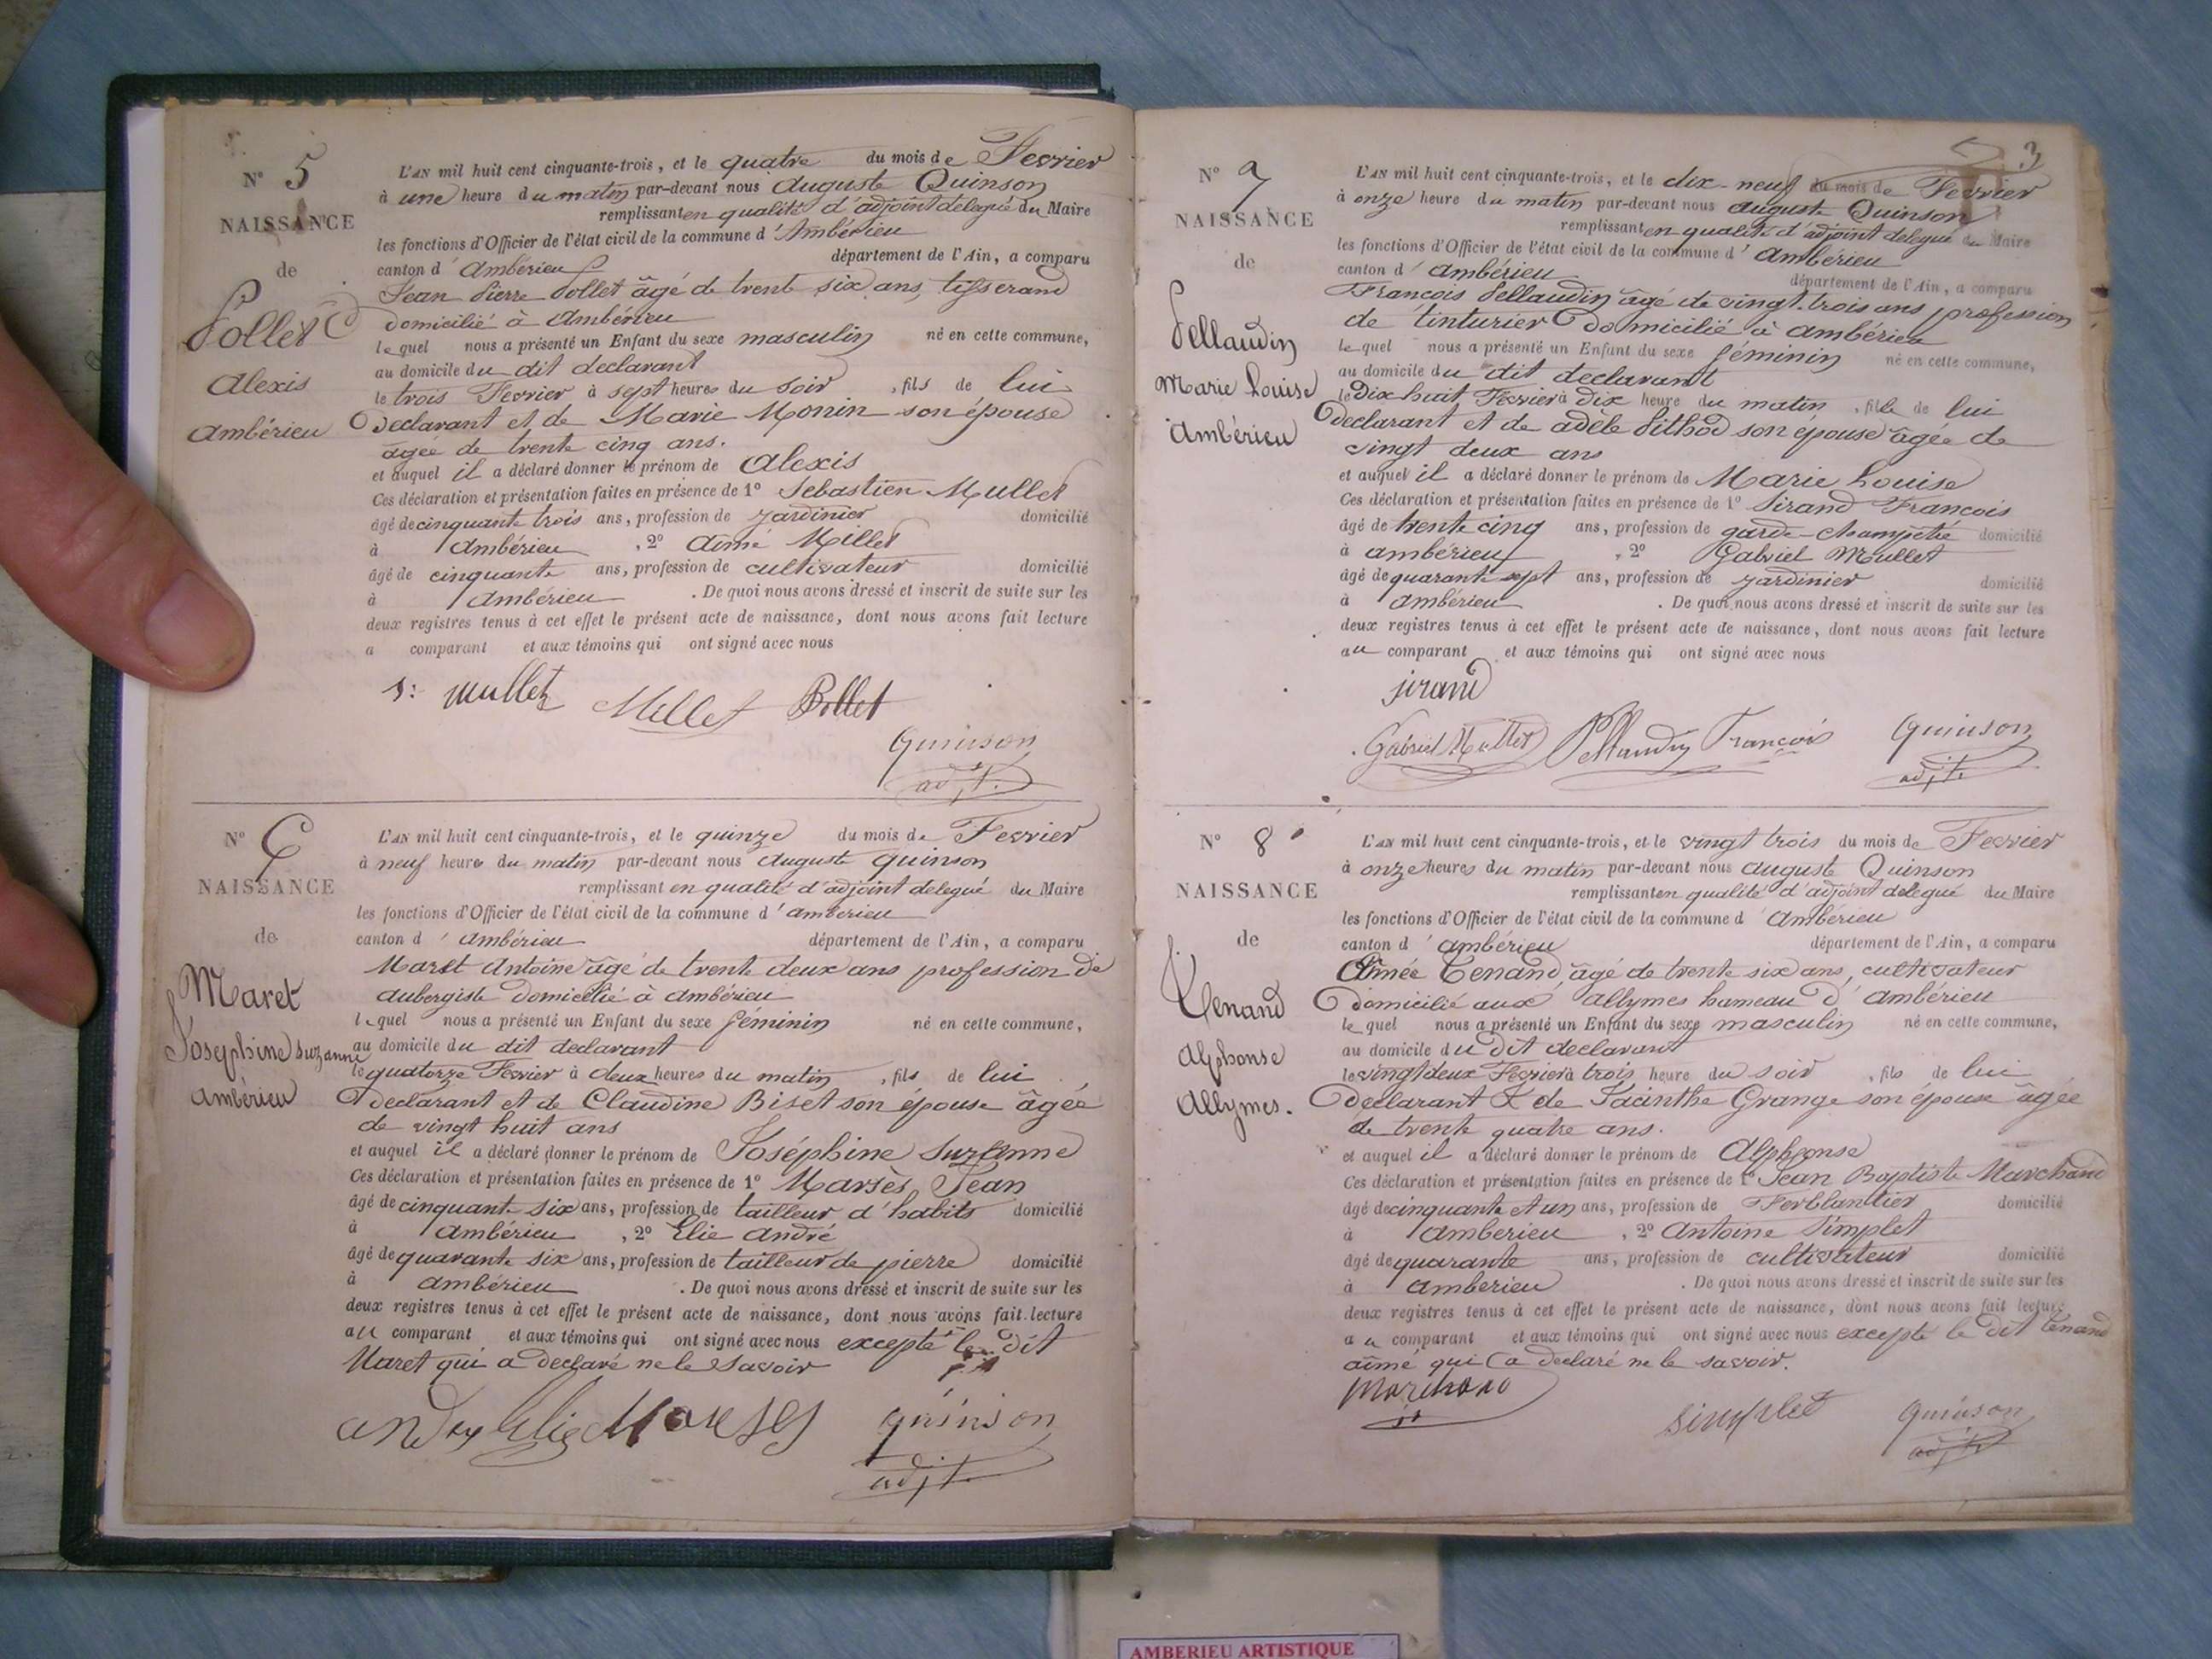 N° 5
NAISSANCE
de
Pollet
Alexis
Ambérieu
L'AN mil huit cent cinquante-trois, et le quatre du mois de Fevrier
à une heure du matin par-devant nous Auguste Quinson
remplissant en qualité d'adjoint delegué du Maire
les fonctions d'Officier de l'état civil de la commune d'Ambérieu
canton d'Ambérieu département de l'Ain, a comparu
Jean Pierre Pollet âgé de trente six ans, tisserand
domicilié à Ambérieu
lequel nous a présenté un Enfant du sexe masculin né en cette commune,
au domicile du dit declarant
le trois Fevrier à sept heures du soir, fils de lui
declarant et de Marie Monin son épouse
âgée de trente cinq ans.
et auquel il a déclaré donner le prénom de Alexis
Ces déclaration et présentation faites en présence de 1° Sebastien Mullet
âgé de cinquante trois ans, profession de jardinier domicilié
à Ambérieu, 2° Aimé Millet
âgé de cinquante ans, profession de cultivateur domicilié
à Ambérieu. De quoi nous avons dressé et inscrit de suite sur les
deux registres tenus à cet effet le présent acte de naissance, dont nous avons fait lecture
a comparant et aux témoins qui ont signé avec nous
S: mullet Millet Pollet
Quinson
adjt.
N° 6
NAISSANCE
de
Maret
Joséphine Suzanne
Ambérieu
L'AN mil huit cent cinquante-trois, et le quinze du mois de Fevrier
à neuf heures du matin par-devant nous Auguste Quinson
remplissant en qualité d'adjoint delegué du Maire
les fonctions d'Officier de l'état civil de la commune d'Ambérieu
canton d'Ambérieu département de l'Ain, a comparu
Maret Antoine âgé de trente deux ans profession de
aubergiste domicilié à Ambérieu
lequel nous a présenté un Enfant du sexe féminin né en cette commune,
au domicile du dit declarant
le quatorze Fevrier à deux heures du matin, fils de lui
declarant et de Claudine Biset son épouse âgée
de vingt huit ans
et auquel il a déclaré donner le prénom de Joséphine Suzanne
Ces déclaration et présentation faites en présence de 1° Marsès Jean
âgé de cinquante six ans, profession de tailleur d'habits domicilié
à Ambérieu, 2° Elie André
âgé de quarante six ans, profession de tailleur de pierre domicilié
à Ambérieu. De quoi nous avons dressé et inscrit de suite sur les
deux registres tenus à cet effet le présent acte de naissance, dont nous avons fait lecture
au comparant et aux témoins qui ont signé avec nous excepté le dit
Maret qui a declaré ne le savoir
Quinson
adjt.
3
N° 7
NAISSANCE
de
Pellaudin
Marie Louise
Ambérieu
L'AN mil huit cent cinquante-trois, et le dix-neuf du mois de Fevrier
à onze heure du matin par-devant nous Auguste Quinson
remplissant en qualité d'adjoint delegué du Maire
les fonctions d'Officier de l'état civil de la commune d'Ambérieu
canton d'Ambérieu département de l'Ain, a comparu
François Pellaudin âgé de vingt-trois ans profession
de tinturier domicilié à Ambérieu
lequel nous a présenté un Enfant du sexe féminin né en cette commune,
au domicile du dit declarant
le Dix huit Fevrier à Dix heure du matin, fille de lui
declarant et de Adèle Pithod son epouse âgée de
vingt deux ans
et auquel il a déclaré donner le prénom de Marie Louise
Ces déclaration et présentation faites en présence de 1° Sirand Francois
âgé de trente cinq ans, profession de garde-champetre domicilié
à Ambérieu, 2° Gabriel Mullet
âgé de quarante sept ans, profession de jardinier domicilié
à Ambérieu. De quoi nous avons dressé et inscrit de suite sur les
deux registres tenus à cet effet le présent acte de naissance, dont nous avons fait lecture
au comparant et aux témoins qui ont signé avec nous
sirand
Gabriel Mullet Pellaudin François Quinson
adjt.
N° 8
NAISSANCE
de
Tenand
Alphonse
Allymes.
L'AN mil huit cent cinquante-trois, et le vingt trois du mois de Fevrier
à onze heures du matin par-devant nous Auguste Quinson
remplissant en qualité d'adjoint delegué du Maire
les fonctions d'Officier de l'état civil de la commune d'Ambérieu
canton d'Ambérieu département de l'Ain, a comparu
Aimée Tenand, âgé de trente six ans, cultivateur
domicilié aux Allymes hameau d'Ambérieu
lequel nous a présenté un Enfant du sexe masculin né en cette commune,
au domicile du dit declarant
le vingt deux Fevrier à trois heure du soir, fils de lui
declarant & de Jacinthe Grange son épouse âgée
de trente quatre ans.
et auquel il a déclaré donner le prénom de Alphonse
Ces déclaration et présentation faites en présence de 1° Jean Baptiste Marchand
âgé de cinquante et un ans, profession de Ferblantier domicilié
à Amberieu, 2° Antoine Simplet
âgé de quarante ans, profession de cultivateur domicilié
à Amberieu. De quoi nous avons dressé et inscrit de suite sur les
deux registres tenus à cet effet le présent acte de naissance, dont nous avons fait lecture
au comparant et aux témoins qui ont signé avec nous excepté le dit Tenand
aimé qui a declaré ne le savoir.
Marchand
simplet Quinson
adjt.
AMBERIEU ARTISTIQUE